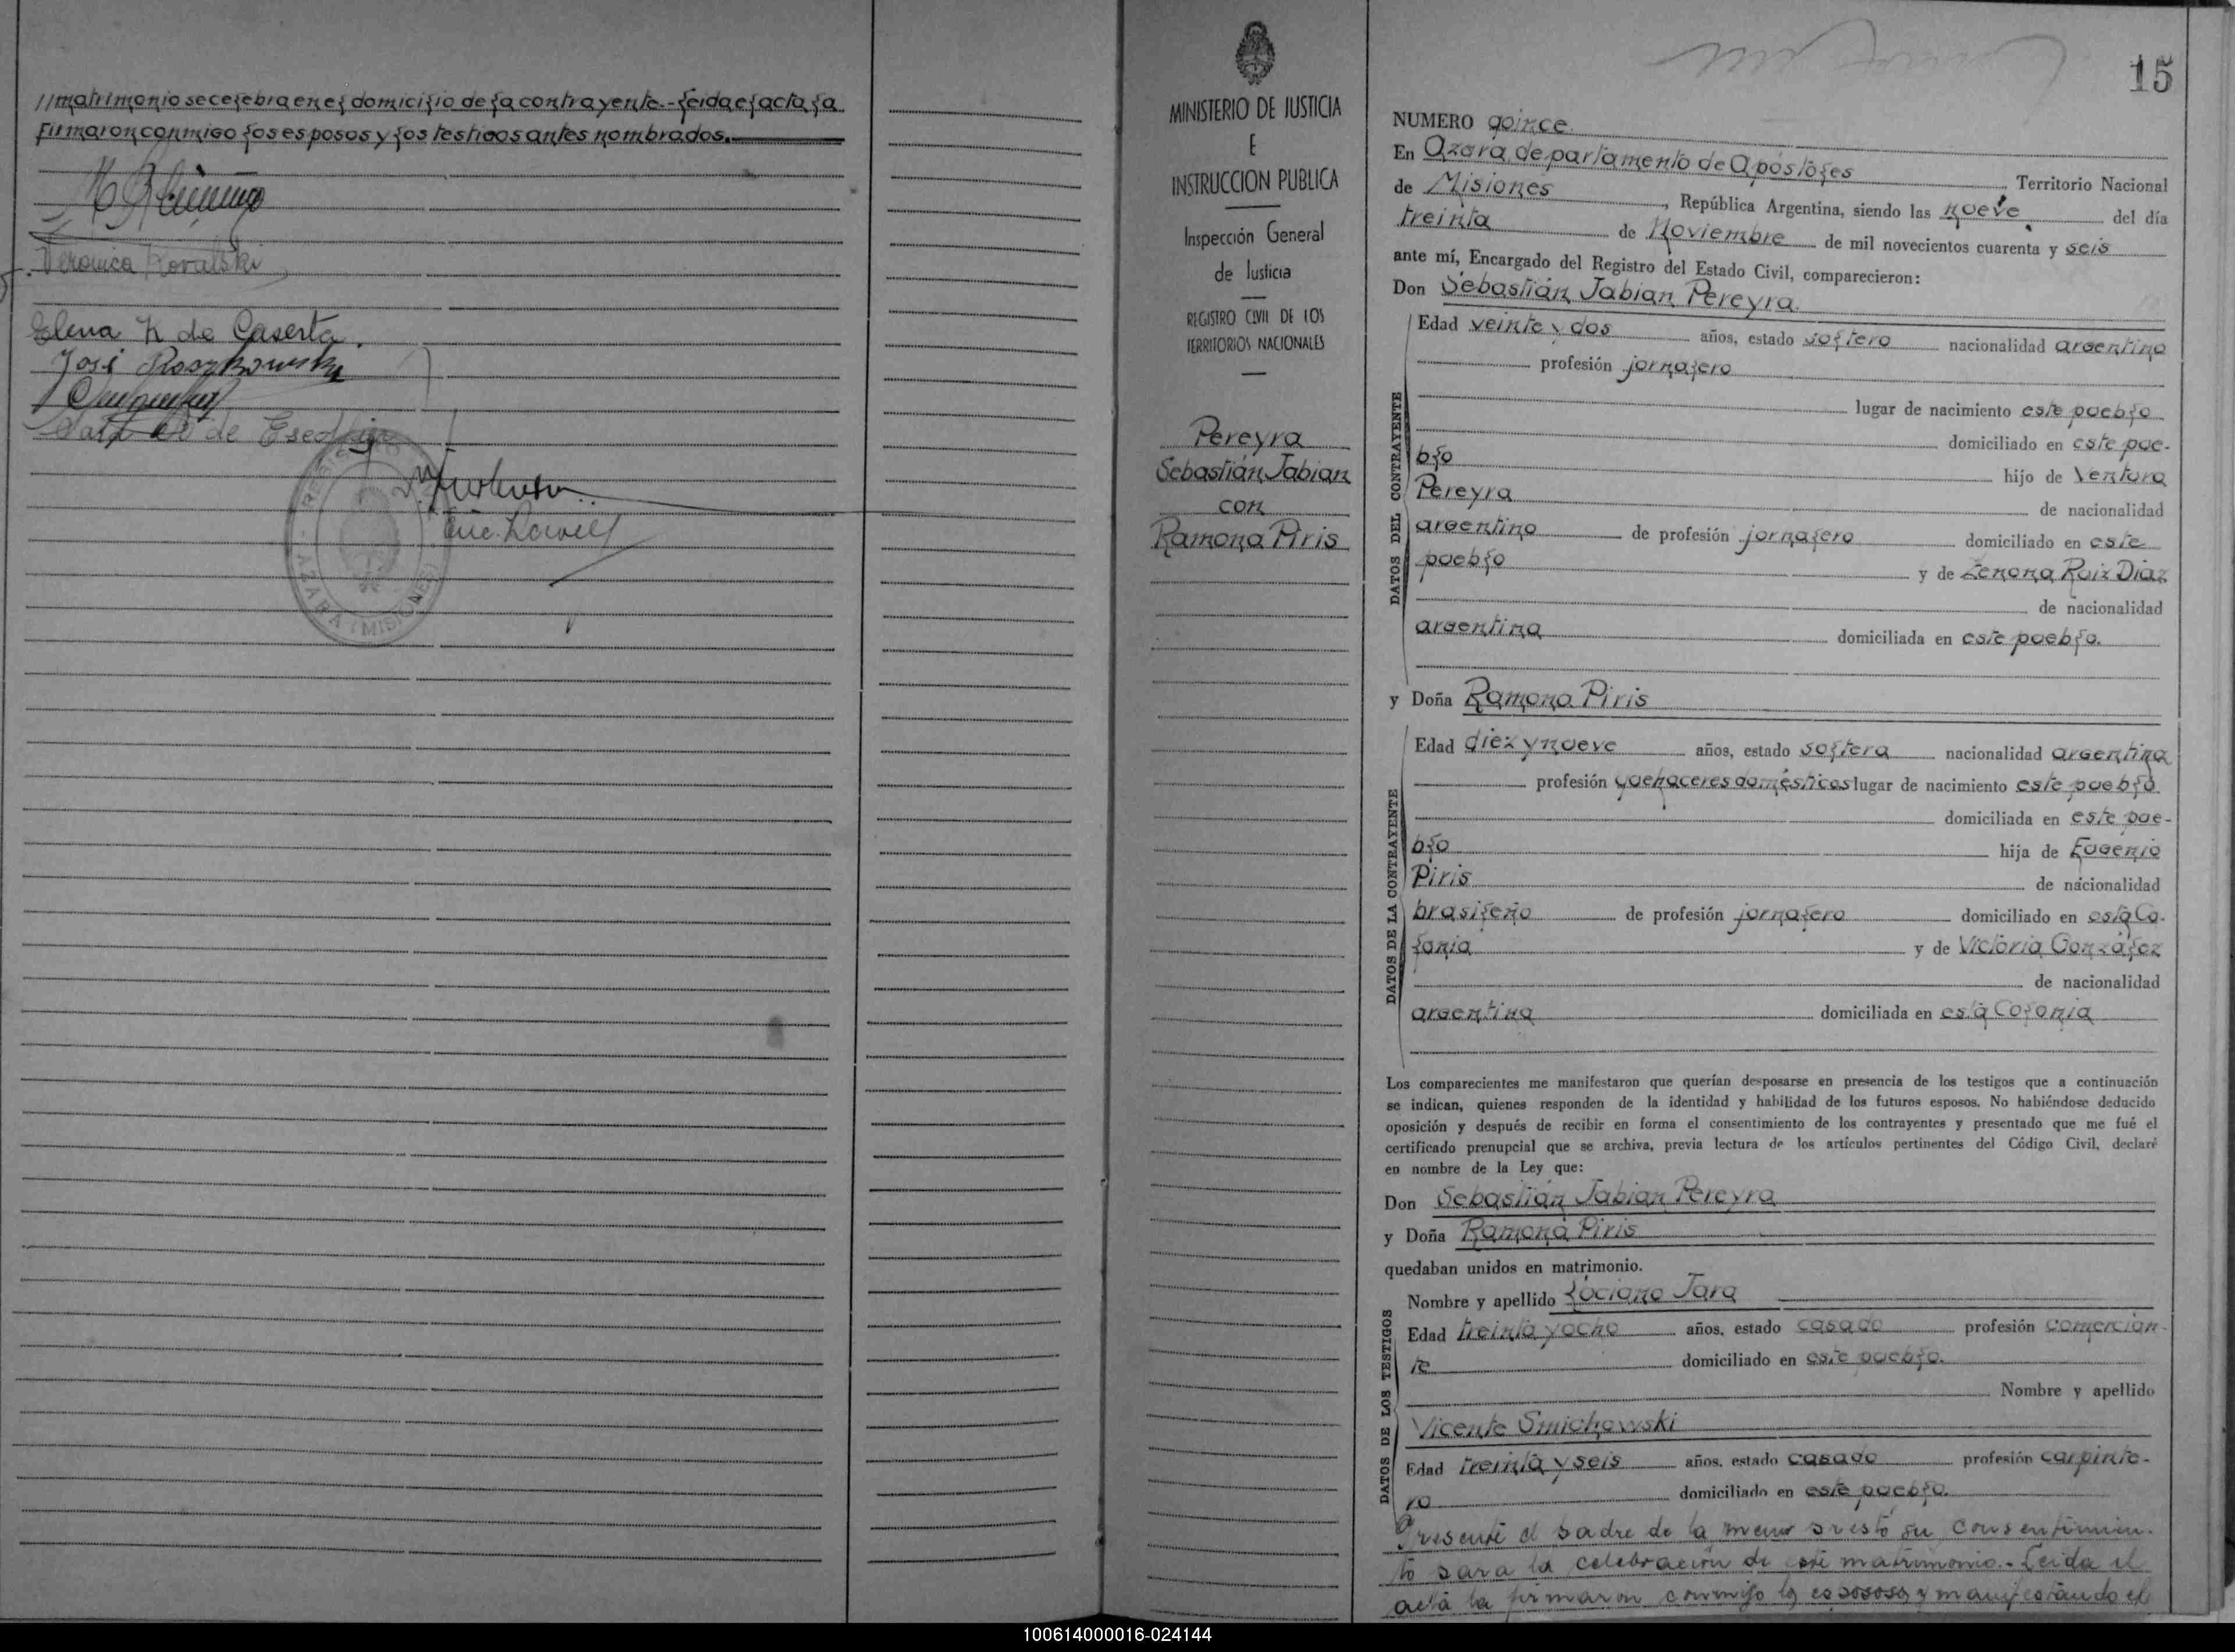 // matrimonio se celebra en el domicilio de la contrayente.- Leida el acta la
firmaron conmigo los esposos y los testigos antes nombrados.
Veronica Kovalski
Elena K de Caserta
José Roszkowski
AZARA (MISIONES)
MINISTERIO DE JUSTICIA
E
INSTRUCCION PUBLICA
Inspección General
de Justicia
REGISTRO CIVIL DE LOS
TERRITORIOS NACIONALES
Pereyra
Sebastián Fabian
con
Ramona Piris
15
NUMERO quince
En Azara, departamento de Apóstoles
Territorio Nacional
de Misiones, República Argentina, siendo las nueve del día
treinta de Noviembre de mil novecientos cuarenta y seis
ante mí, Encargado del Registro del Estado Civil, comparecieron:
Don Sebastián Fabian Pereyra.
DATOS DEL CONTRAYENTE
Edad veinte y dos años, estado soltero nacionalidad argentino
profesión jornalero
lugar de nacimiento este pueblo
domiciliado en este pue-
blo hijo de Ventura
Pereyra de nacionalidad
argentino de profesión jornalero domiciliado en este
pueblo y de Zenona Ruiz Diaz
de nacionalidad
argentina domiciliada en este pueblo.
y Doña Ramona Piris
DATOS DE LA CONTRAYENTE
Edad diez y nueve años, estado soltera nacionalidad argentina
profesión quehaceres domésticos lugar de nacimiento este pueblo
domiciliada en este pue-
blo hija de Eugenio
Piris de nacionalidad
brasileño de profesión jornalero domiciliado en esta Co-
lonia y de Victoria González
de nacionalidad
argentina domiciliada en esta Colonia
Los comparecientes me manifestaron que querían desposarse en presencia de los testigos que a continuación
se indican, quienes responden de la identidad y habilidad de los futuros esposos. No habiéndose deducido
oposición y después de recibir en forma el consentimiento de los contrayentes y presentado que me fué el
certificado prenupcial que se archiva, previa lectura de los artículos pertinentes del Código Civil, declaré
en nombre de la Ley que:
Don Sebastián Fabian Pereyra
y Doña Ramona Piris
quedaban unidos en matrimonio.
DATOS DE LOS TESTIGOS
Nombre y apellido Luciano Jara
Edad treinta y ocho años, estado casado profesión comercian-
te domiciliado en este pueblo.
Nombre y apellido
Vicente Smichowski
Edad treinta y seis años, estado casado profesión carpinte-
ro domiciliado en este pueblo.
Presente el padre de la menor prestó su consentimien-
to para la celebración de este matrimonio.- Leida el
acta la firmaron conmigo los esposos y manifestando el
100614000016-024144